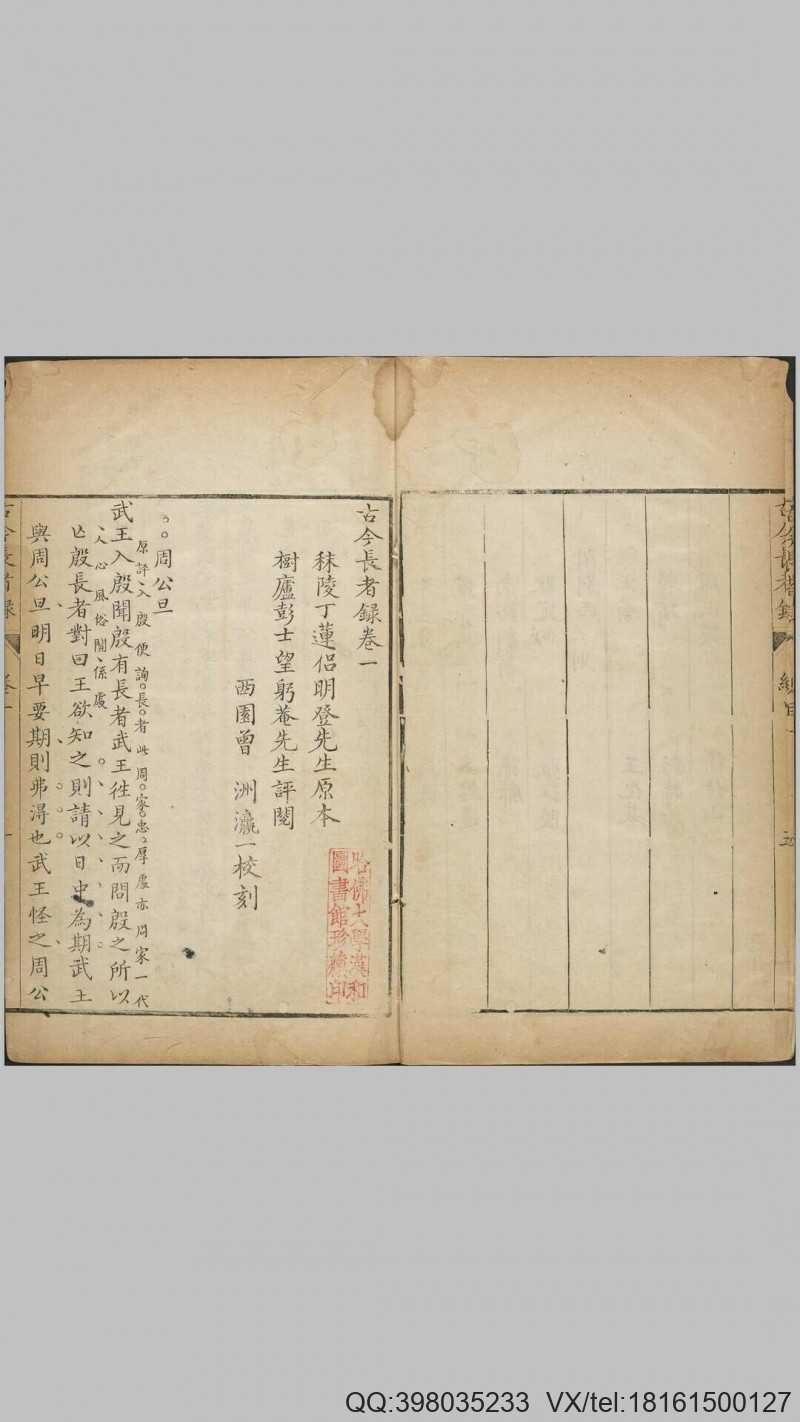 古今長者録卷一
秣陵丁蓮侣明登先生原本
樹廬彭士望躬菴先生評閱
西園曾 洲瀛一校刻
哈佛大學漢和
圖書館珍藏印
周公旦
原評入殷便詢長者此周家忠厚處亦周家一代
人心風俗關係處
武王入殷聞殷有長者武王徃見之而問殷之所以
亾殷長者對曰王欲知之則請以日中為期武王
與周公旦明日早要期則弗得也武王怪之周公
古今長者録
卷一
一
古今長者録
總目
QQ:398035233 VX/tel:18161500127